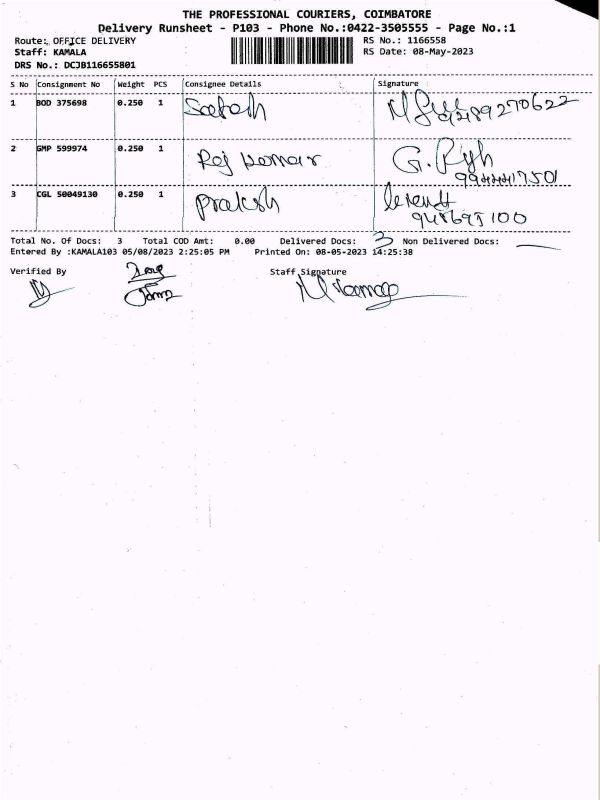 THE PROFESSIONAL COURIERS, COIMBATORE
Delivery Runsheet - P103 - Phone No.:0422-3505555 - Page No.:1
Route: OFFICE DELIVERY
RS No.: 1166558
Staff: KAMALA
RS Date: 08-May-2023
DRS No.: DCJB116655801
S No Consignment No Weight PCS Consignee Details Signature
1 BOD 375698 0.250 1 Satish
9489270622
2 GMP 599974 0.250 1 Raj kumar G.
9944417501
3 CGL 50049130 0.250 1 Praksh
948695100
Total No. Of Docs: 3 Total COD Amt: 0.00 Delivered Docs: 3 Non Delivered Docs:
Entered By :KAMALA103 05/08/2023 2:25:05 PM Printed On: 08-05-2023 14:25:38
Verified By Staff Signature